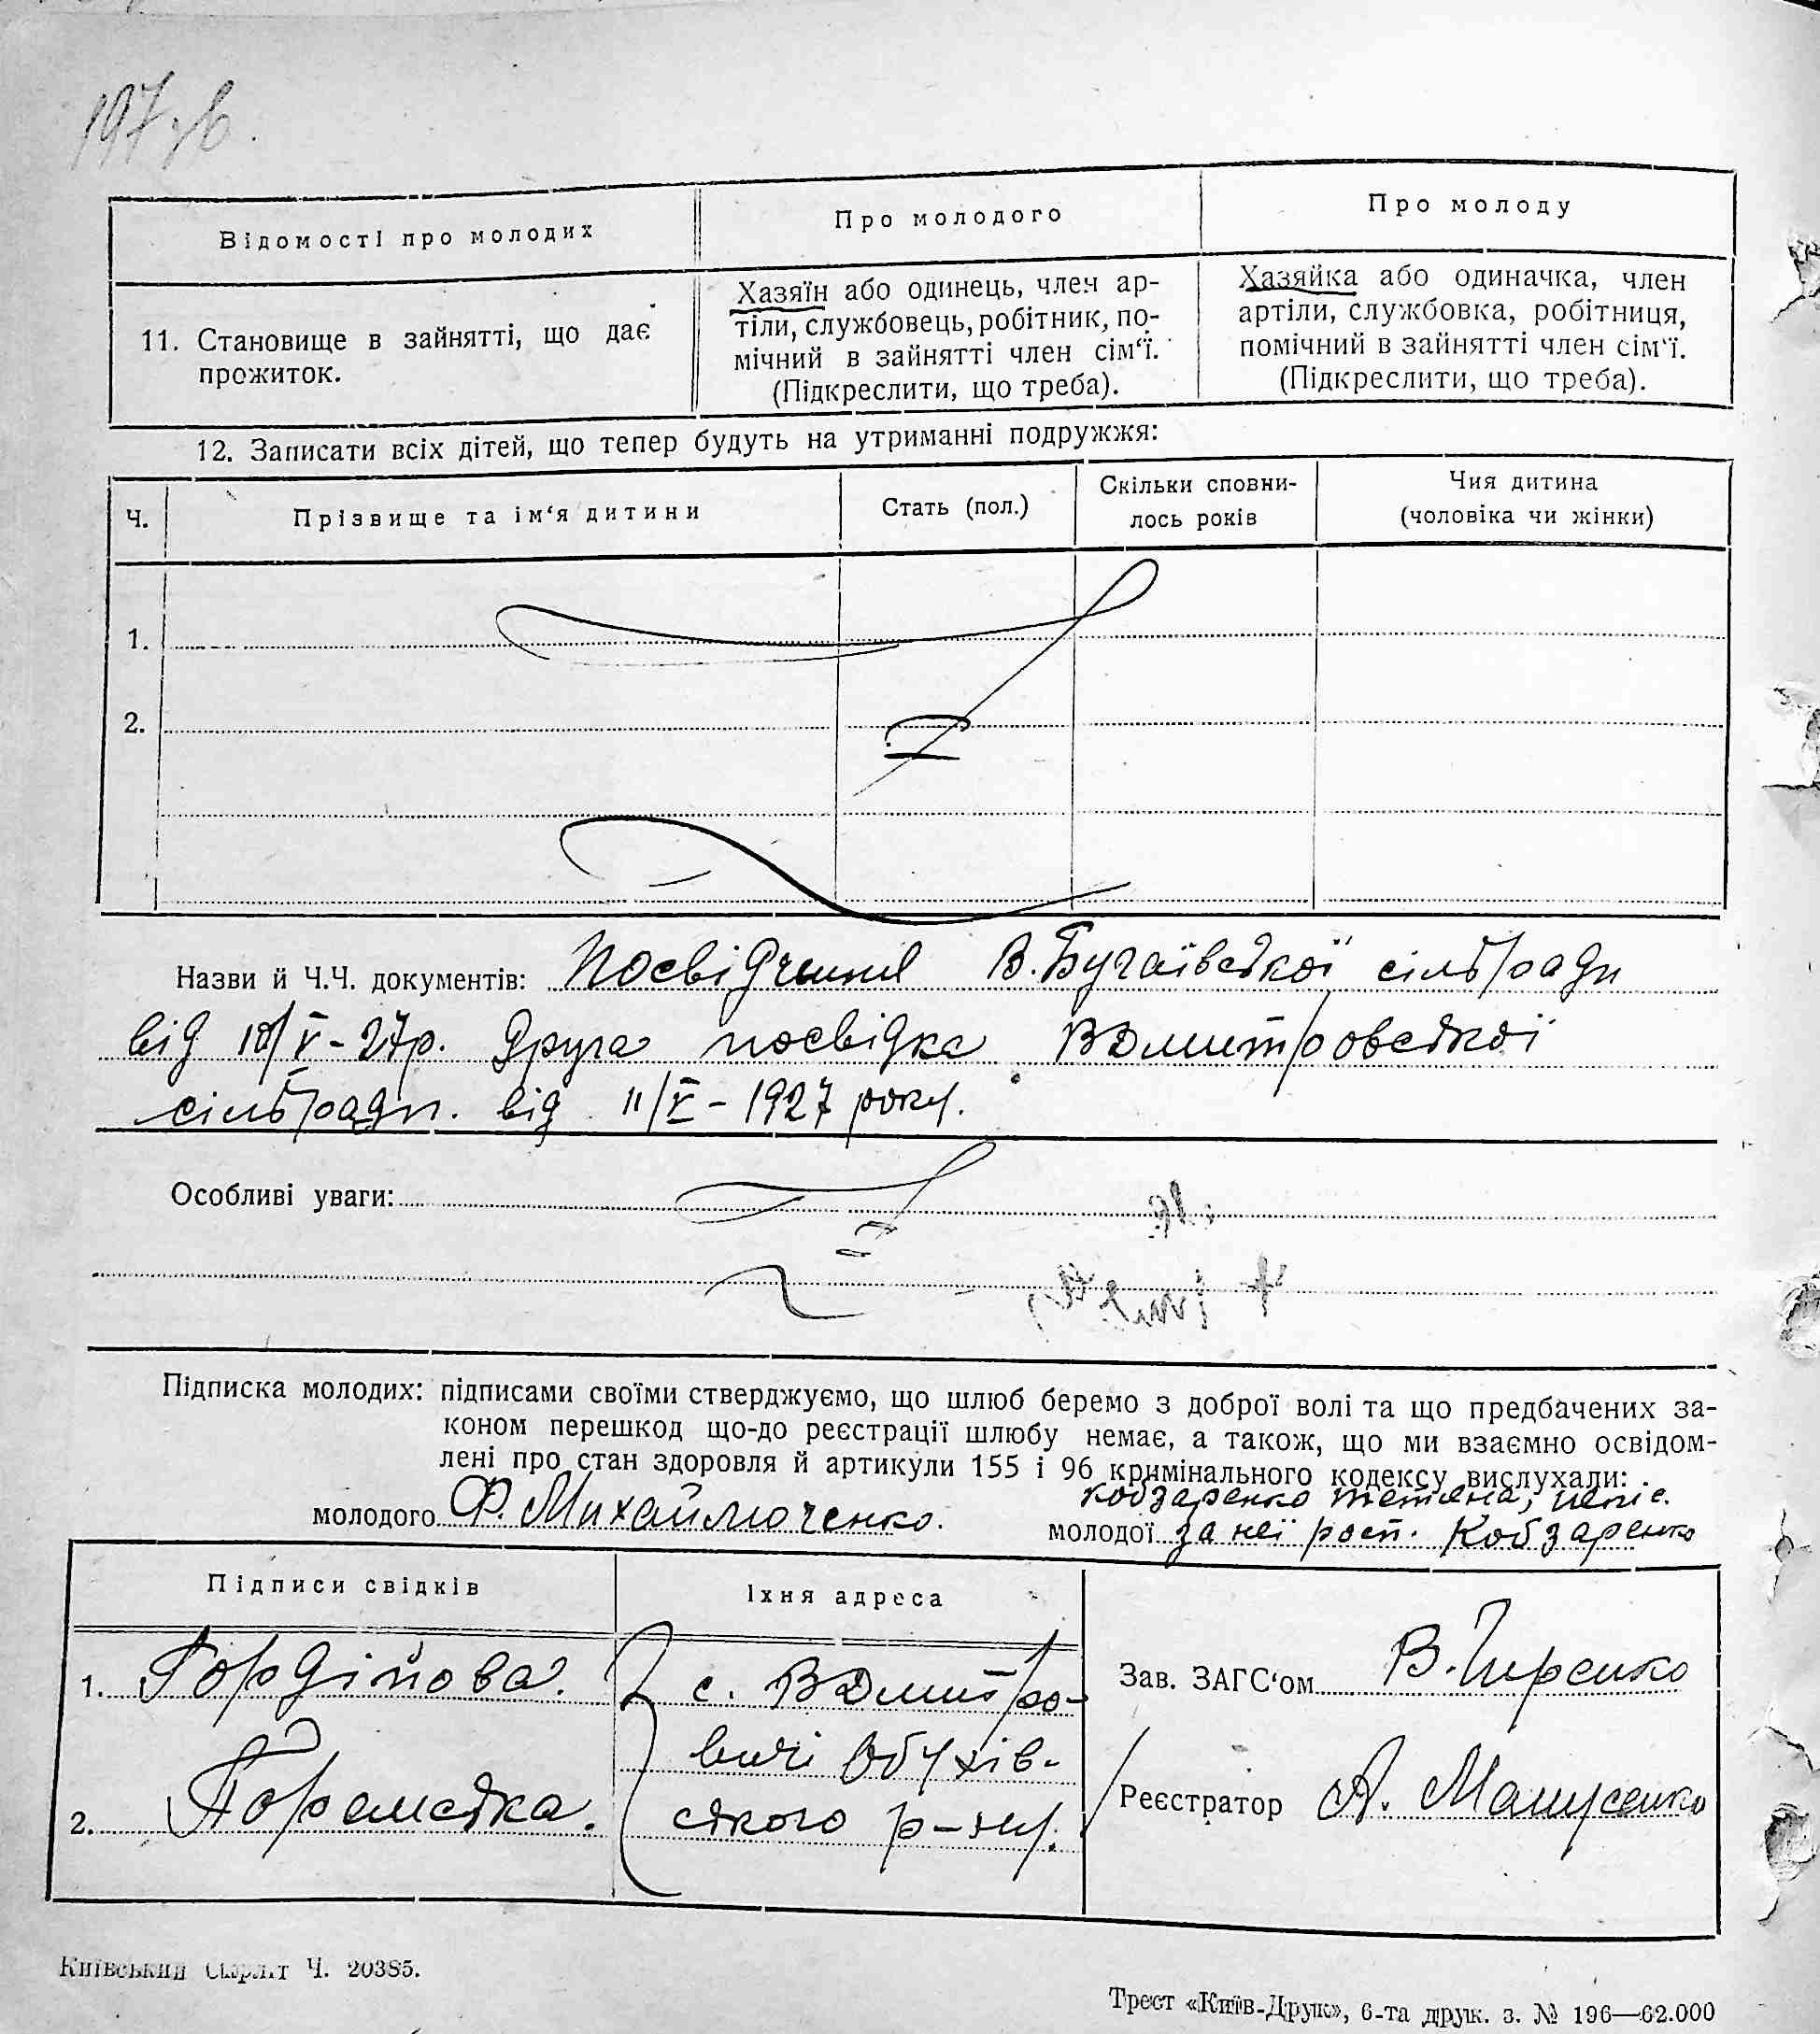 197 зв.
Відомості про молодих
Про молодого
Про молоду
11. Становище в зайнятті, що дає
прожиток.
Хазяїн або одинець, член ар-
тіли, службовець, робітник, по-
мічний в зайнятті член сім'ї.
(Підкреслити, що треба).
Хазяйка або одиначка, член
артіли, службовка, робітниця,
помічний в зайнятті член сім'ї.
(Підкреслити, що треба).
12. Записати всіх дітей, що тепер будуть на утриманні подружжя:
Ч.
Прізвище та ім'я дитини
Стать (пол.)
Скільки сповни-
лось років
Чия дитина
(чоловіка чи жінки)
1.
2.
Назви й Ч.Ч. документів: Посвідчення В.Бугаївської сільради
від 10/V-27р. Друга посвідка ВДмитровської
сільради. від 11/V-1927 року.
Особливі уваги:
Підписка молодих: підписами своїми стверджуємо, що шлюб беремо з доброї волі та що предбачених за-
коном перешкод що-до реєстрації шлюбу немає, а також, що ми взаємно освідом-
лені про стан здоровля й артикули 155 і 96 кримінального кодексу вислухали:
молодого Ф. Михайлюченко.
Кобзаренко Тетяна, непис.
молодої за неї росп. Кобзаренко
Підписи свідків
Їхня адреса
1. Гордійова.
2.
с. ВДмитро-
вичі Обухів-
ського р-ну.
Зав. ЗАГС'ом
Реєстратор А.
Київський Окрліт Ч. 20385.
Трест «Київ-Друк», 6-та друк. з. № 196—62.000